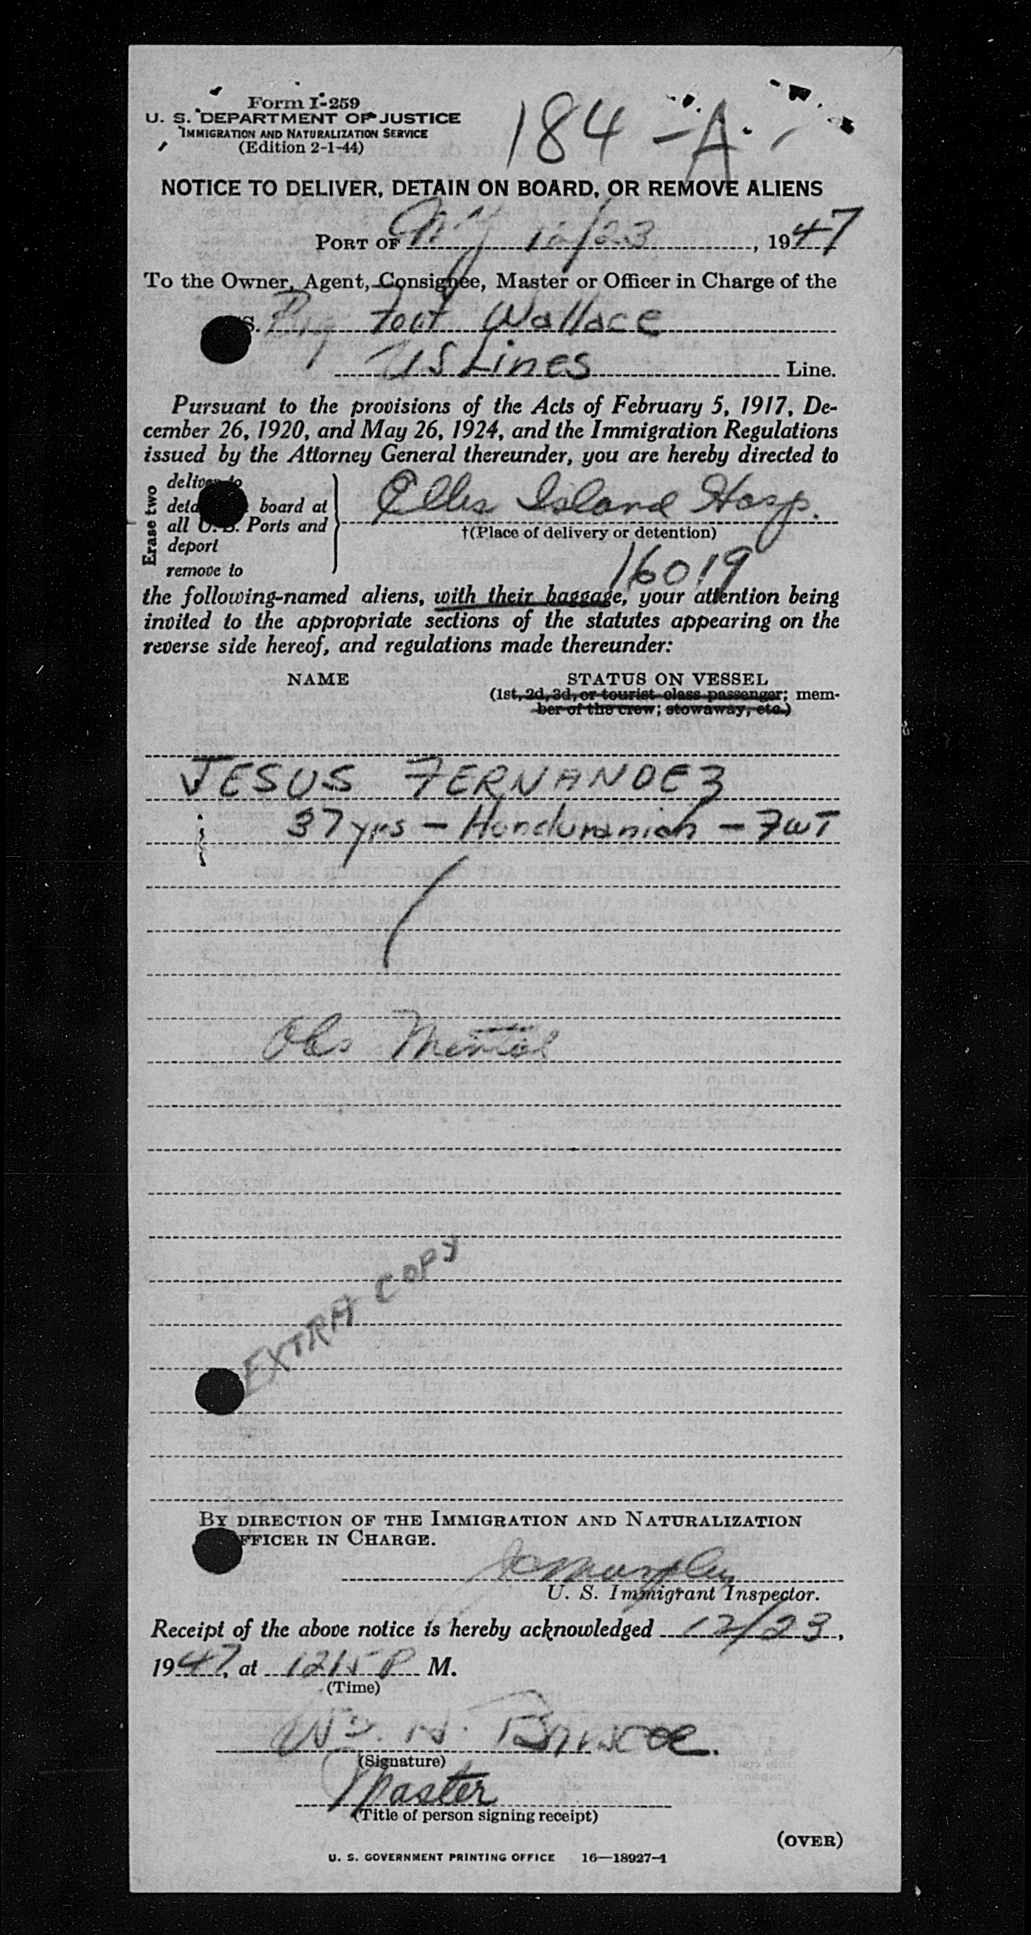 Form I-259
U. S. DEPARTMENT OF JUSTICE
IMMIGRATION AND NATURALIZATION SERVICE
(Edition 2-1-44)
184-A
NOTICE TO DELIVER, DETAIN ON BOARD, OR REMOVE ALIENS
PORT OF N.Y 12/23, 1947
To the Owner, Agent, Consignee, Master or Officer in Charge of the
S. Big Foot Wallace
US Lines Line.
Pursuant to the provisions of the Acts of February 5, 1917, De-
cember 26, 1920, and May 26, 1924, and the Immigration Regulations
issued by the Attorney General thereunder, you are hereby directed to
Erase two
deliver to
board at
all U.S. Ports and
deport
remove to
Ellis Island Hosp.
†(Place of delivery or detention)
16019
the following-named aliens, with their baggage, your attention being
invited to the appropriate sections of the statutes appearing on the
reverse side hereof, and regulations made thereunder:
NAME STATUS ON VESSEL
(1st, 2d, 3d, or tourist class passenger; mem-
ber of the crew; stowaway, etc.)
JESUS FERNANDEZ
37 yrs - Honduranian - FWT
Obs Mental
EXTRA COPY
BY DIRECTION OF THE IMMIGRATION AND NATURALIZATION
OFFICER IN CHARGE.
Murphy
U. S. Immigrant Inspector.
Receipt of the above notice is hereby acknowledged 12/23,
1947, at 1215 P M.
(Time)
Wm. H. Briscoe.
(Signature)
Master
(Title of person signing receipt)
(OVER)
U. S. GOVERNMENT PRINTING OFFICE 16—18927-1